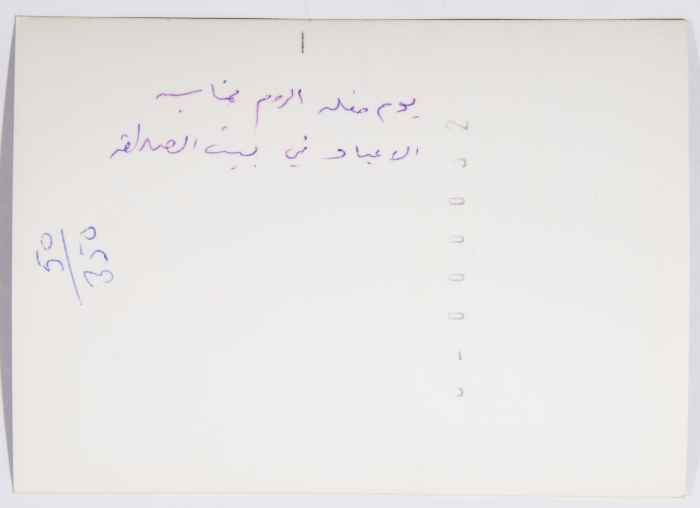 يوم حفله الروم بمناسبه
الاعياد في بيت الصداقه
50/350